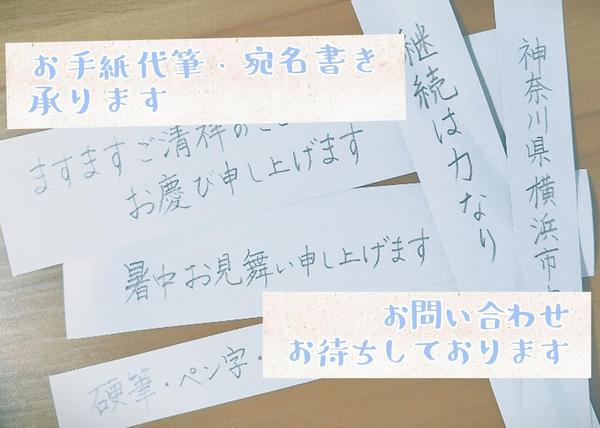 お手紙代筆・宛名書き
承ります
ますますご清祥のこ
お慶び申し上げます
暑中お見舞い申し上げます
硬筆・ペン字・
継続は力なり
神奈川県横浜市
お問い合わせ
お待ちしております